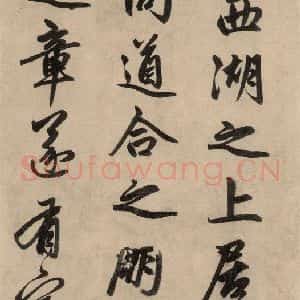 西湖之上居
道合之朋
章遂有
Shufawang.CN